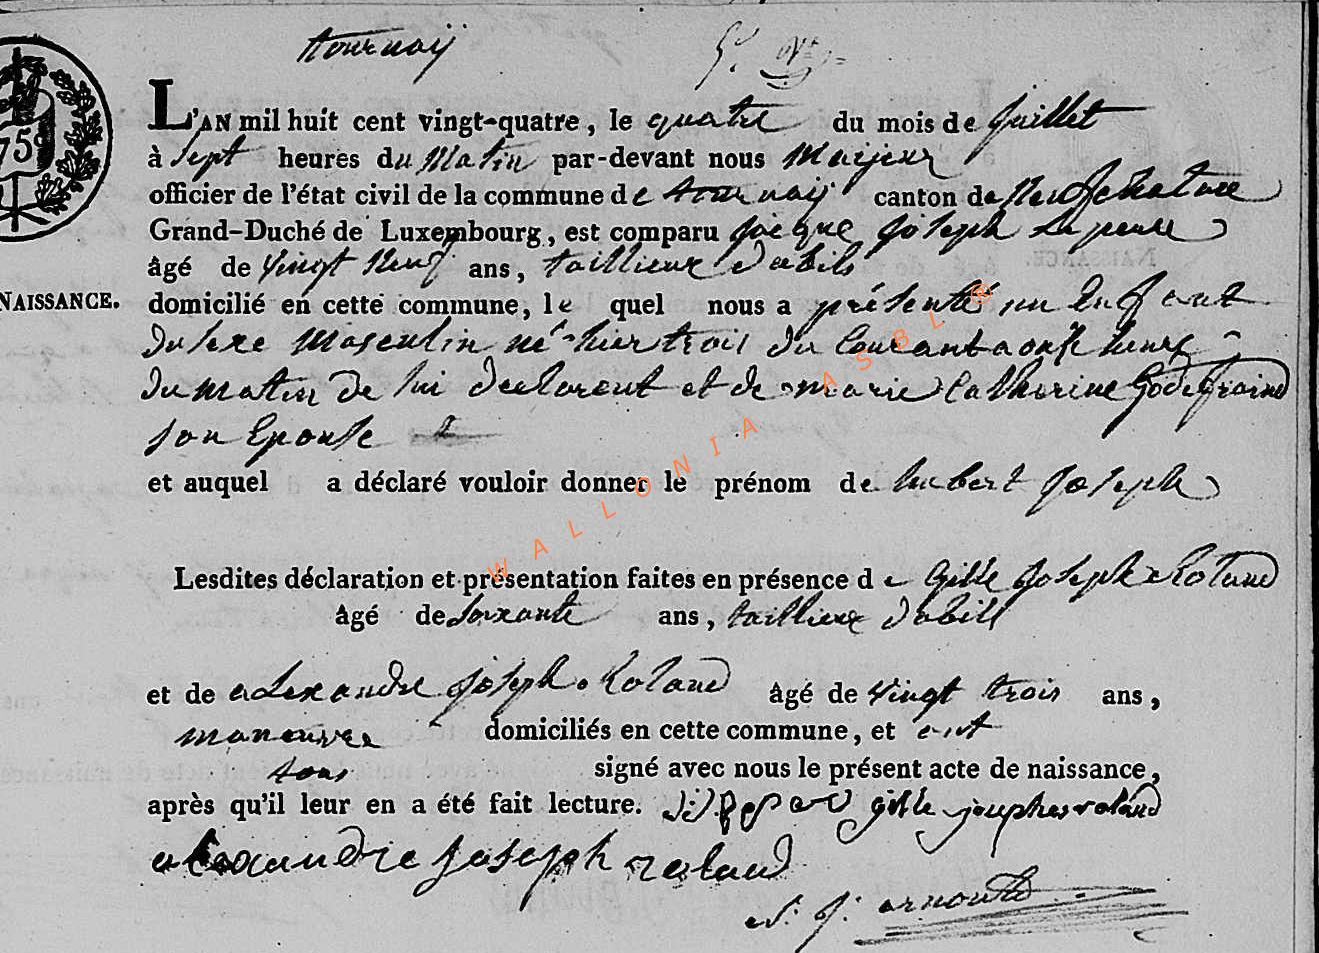 tournaij
75
L'AN mil huit cent vingt-quatre, le quatre du mois de juillet
à sept heures du matin par-devant nous Maijeur
officier de l'état civil de la commune de tournaij canton de Neufchateau
Grand-Duché de Luxembourg, est comparu jacque joseph
âgé de vingt neuf ans, taillieur d'abils
NAISSANCE.
domicilié en cette commune, le quel nous a présenté un Enfant
du sexe masculin né hier trois du Courant a onse heures
du matin de lui declarent et de marie Catherine Godefroind
son Epouse
et auquel a déclaré vouloir donner le prénom de hubert joseph
Lesdites déclaration et présentation faites en présence de gille joseph Roland
âgé de soixante ans, taillieur d'abill
et de alexandre joseph Roland âgé de vingt trois ans,
maneuvre domiciliés en cette commune, et ont
tous signé avec nous le présent acte de naissance,
après qu'il leur en a été fait lecture. gille jouphes roland
alexandre joseph roland
arnould
WALLONIA ASBL ®